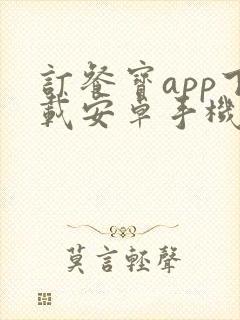 訂餐寶app下
載安卓手機
莫言輕聲